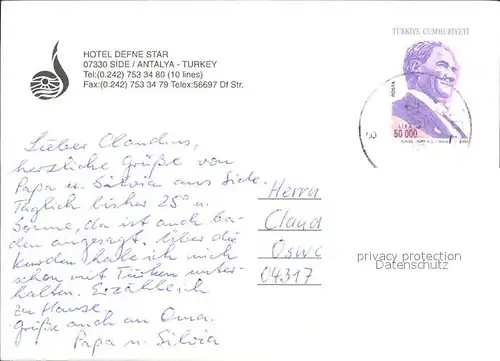 HOTEL DEFNE STAR
07330 SIDE / ANTALYA - TURKEY
Tel:(0.242) 753 34 80 (10 lines)
Fax:(0.242) 753 34 79 Telex:56697 Df Str.
TÜRKİYE CUMHURİYETİ
POSTA
LİRA
50 000
Lieber Claudius,
herzliche Grüße von
Papa u. Silvia aus Side.
Täglich bisher 25° u.
Sonne, da ist auch ba-
den angesagt. Über die
Kurden habe ich mich
schon mit Türken unter-
halten. Erzähle ich
zu Hause.
Grüße auch an Oma.
Papa u. Silvia
Herrn
Claud
Oswa
04317
privacy protection
Datenschutz